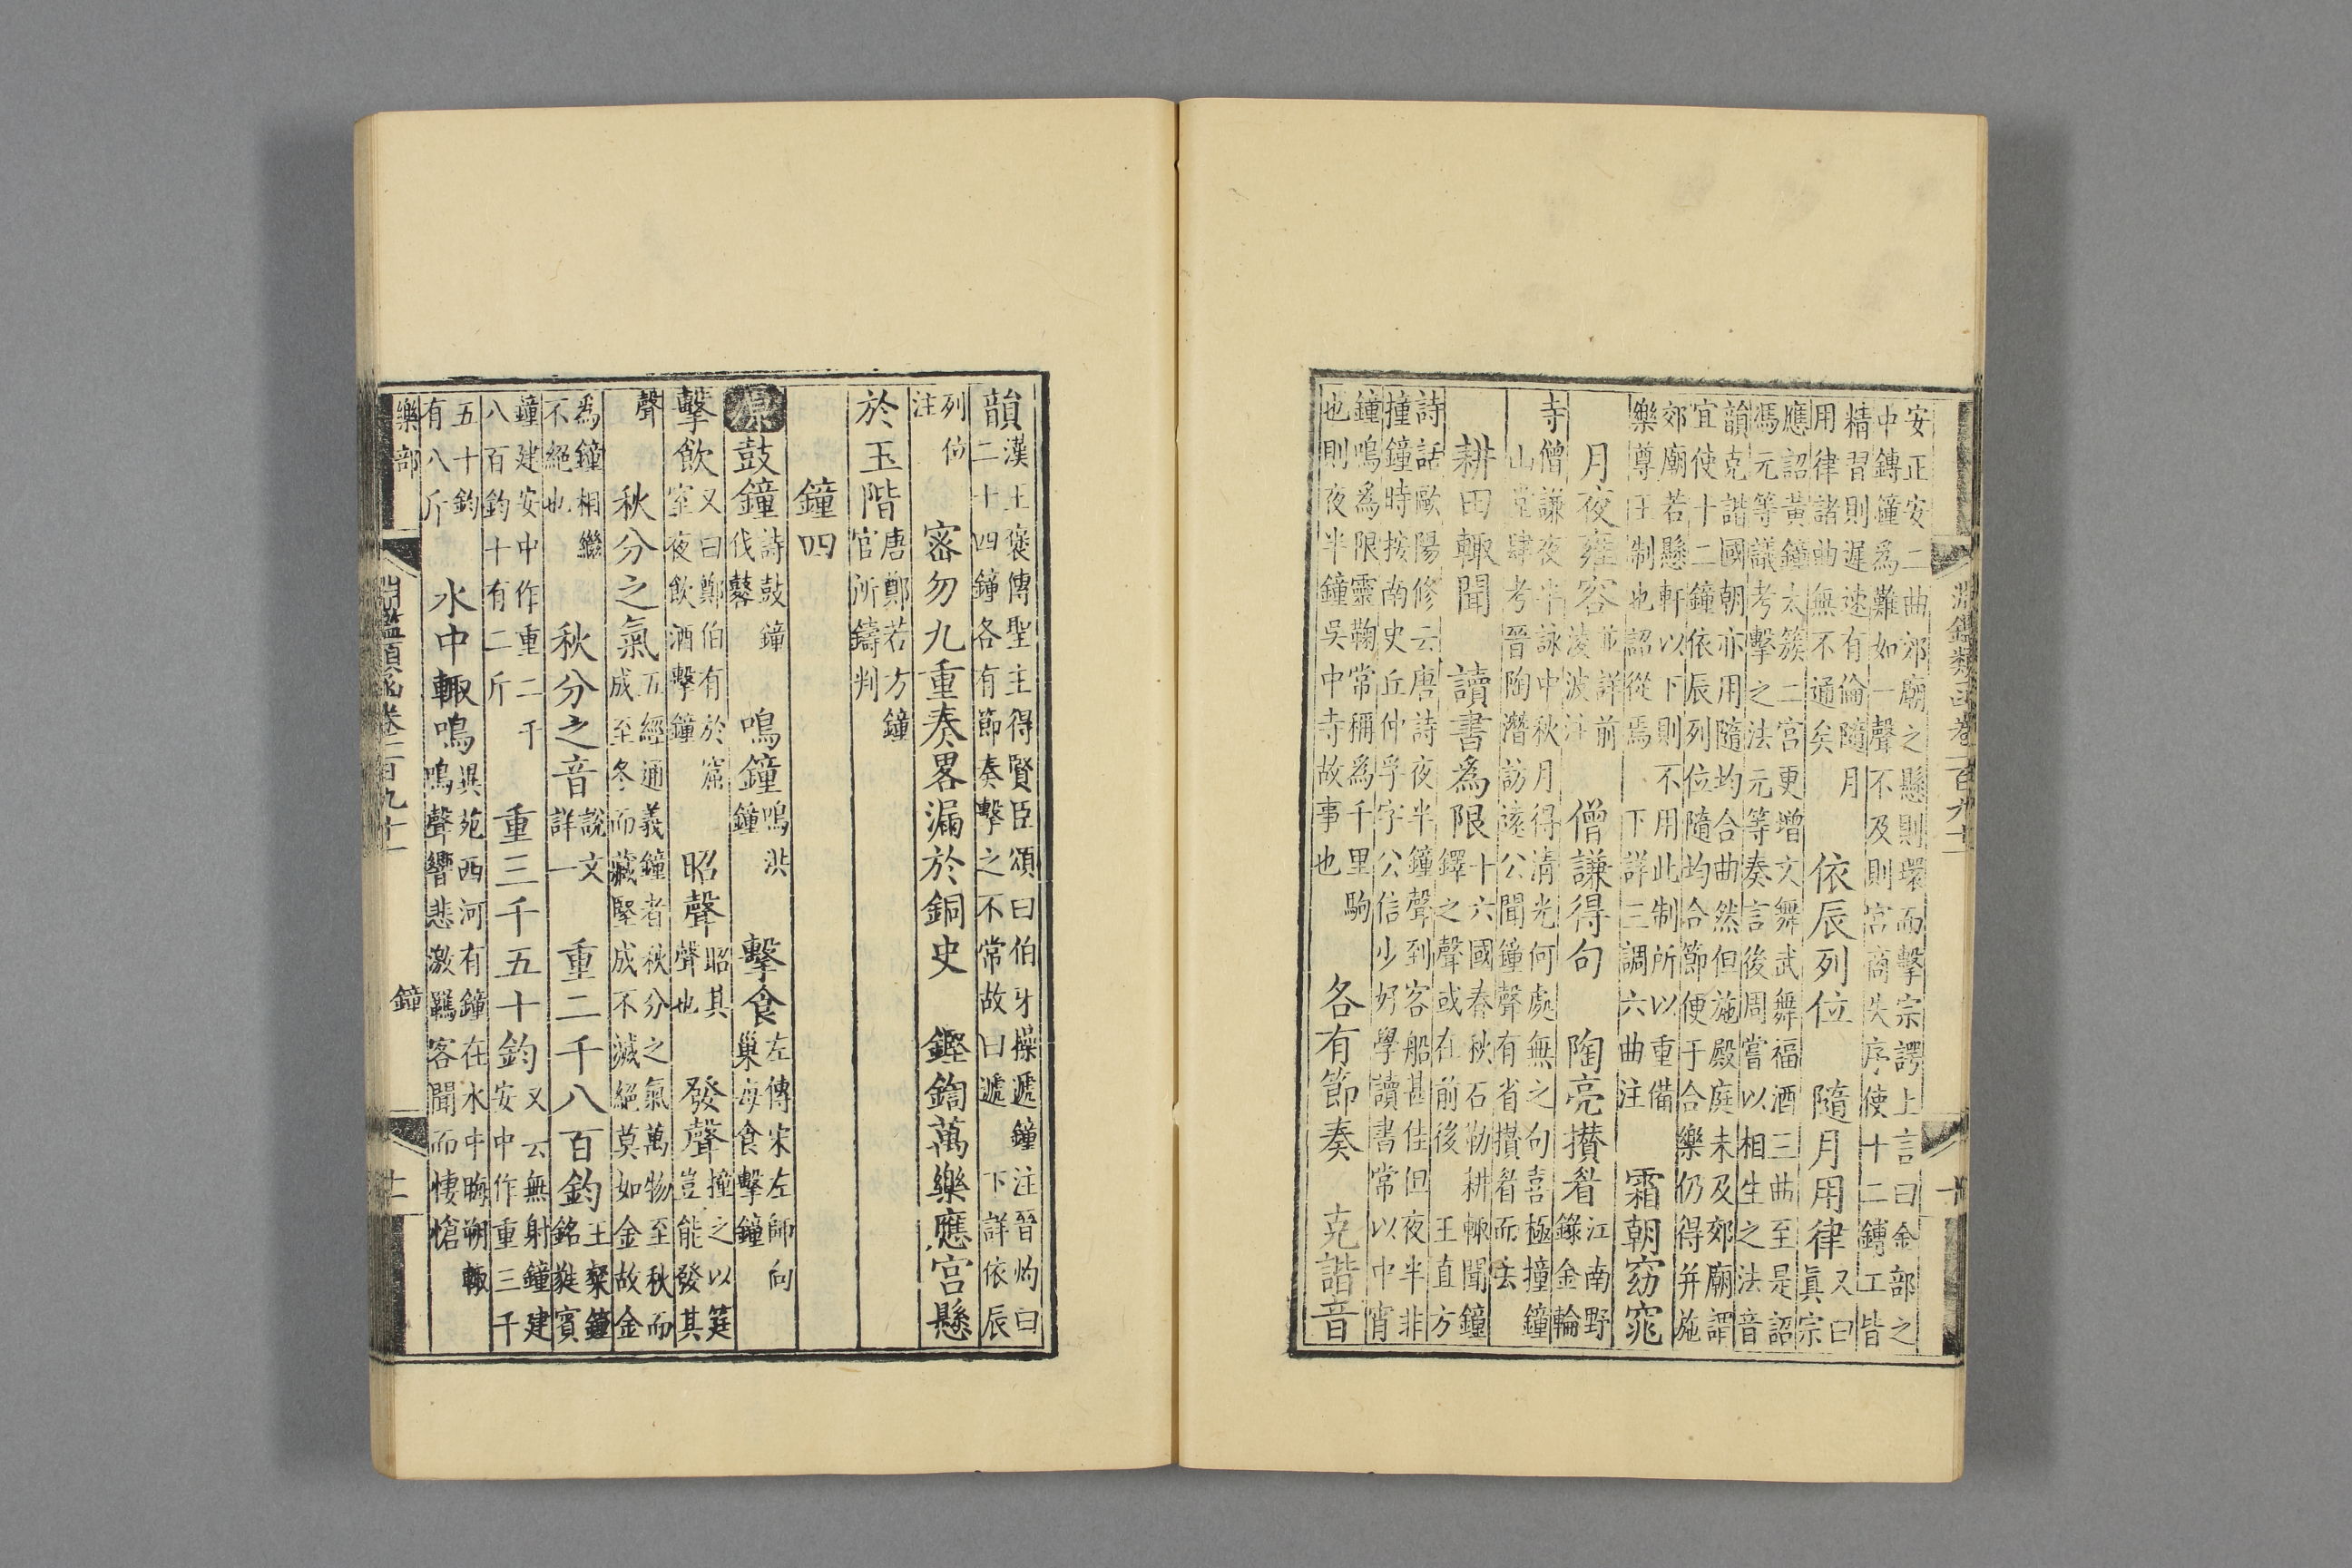 淵鑑類函卷
安正安二曲郊廟之懸則環而擊宗諤上言曰金部之
中鎛鐘為難如一聲不及則宮商失序使十二鎛工皆
精習則遲速有倫隨月
用律諸曲無不通矣
依辰列位 隨月用律
又曰
眞宗
應詔黃鐘太簇二宮更增文舞武舞福酒三曲至是詔
馮元等議考擊之法元等奏言後周嘗以相生之法音
韻克諧國朝亦用隨均合曲然但施殿庭未及郊廟謂
宜使十二鐘依辰列位隨均合節便于合樂仍得并施
郊廟若懸軒以下則不用此制所以重備
樂尊王制也詔從焉 下詳三調六曲注
霜朝窈窕
月夜雍容
並詳前
淩波注
僧謙得句 陶亮攢眉
江南野
錄金輪
寺僧謙夜半詠中秋月得清光何處無之句喜極撞鐘
山堂肆考晉陶潛訪遠公聞鐘聲有省攢眉而去
耕田輙聞 讀書為限
十六國春秋石勒耕輙聞鐘
鐸之聲或在前後 王直方
詩話歐陽修云唐詩夜半鐘聲到客船甚佳但夜半非
撞鐘時按南史丘仲孚字公信少好學讀書常以中宵
鐘鳴為限靈鞠常稱為千里駒
也則夜半鐘吳中寺故事也
各有節奏 克諧音
韻
漢王褒傳聖主得賢臣頌曰伯牙操遞鐘注晉灼曰
二十四鐘各有節奏擊之不常故曰遞 下詳依辰
列位
注
密勿九重奏畧漏於銅史 鏗鍧萬樂應宮懸
於玉階
唐鄭若方鐘
官所鑄判
鐘四
原鼓鐘
詩鼓鐘
伐鼛
鳴鐘
鳴洪
鐘
擊食
左傳宋左師向
巢每食擊鐘
擊飲
又曰鄭伯有於窟
室夜飲酒擊鐘
昭聲
昭其
聲也
發聲
撞之以莛
豈能發其
聲
秋分之氣
五經通義鐘者秋分之氣萬物至秋而
成至冬而藏堅成不滅絕莫如金故金
為鐘相繼
不絕也
秋分之音
說文
詳一
重二千八百鈞
王粲鐘
銘蕤賓
鐘建安中作重二千
八百鈞十有二斤
重三千五十鈞
又云無射鐘建
安中作重三千
五十鈞
有八斤
水中輙鳴
異苑西河有鐘在水中晦朔輙
鳴聲響悲激羈客聞而悽愴
樂部 淵鑑類函卷一百九十一 鐘 十一